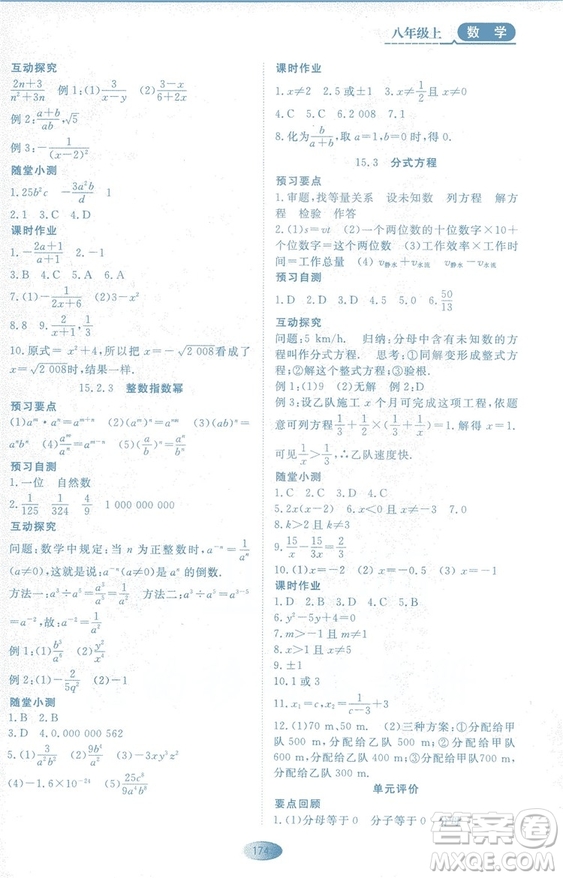 八年级上 数学
互动探究
(2n+3)/(n²+3n) 例1:(1)3/(x-y) (2)(x-3)/(6+2x)
例2:(a+b)/(ab),√5
例3:-1/(x-2)²
随堂小测
1.25b²c -3a²b/d 1
2.(1)D (2)A 3.C 4.D
课时作业
1.-(2a+1)/(a+1) 2.-1
3.B 4.C 5.A 6.A
7.(1)-1/(2x+6) (2)x-1
8.8 9.2/(x+1),1/3
10.原式=x²+4,把x=-√2 008看成了
x=√2 008,结果一样.
15.2.3 整数指数幂
预习要点
(1)aᵐ·aⁿ=aᵐ⁺ⁿ (2)(aᵐ)ⁿ=aᵐⁿ (3)(ab)ⁿ
=aⁿbⁿ (4)aᵐ/aⁿ=aᵐ⁻ⁿ (5)(a/b)ⁿ=aⁿ/bⁿ (6)1
预习自测
1.一位 自然数
2.1/125 1/324 4/9 1 000 000 000
互动探究
问题:数学中规定:当n为正整数时,a⁻ⁿ=1/aⁿ
(a≠0),这就是说,a⁻ⁿ(a≠0)是aⁿ的倒数.
方法一:a³÷a⁵=a³/a⁵=1/a² 方法二:a³÷a⁵=a³⁻⁵
=a⁻²,故:a⁻²=1/a²(a≠0)
例1:(1)1/a⁸ (2)b⁶/a⁴
例2:(1)-2 (2)1/(2q²)
随堂小测
1.D 2.B
3.D 4.0.000 000 562
5.(1)a³/b² (2)9b⁴/a²
6.(1)-1.6×10⁻²⁴ (2)25c⁸/9b²
课时作业
1.x≠2 2.5或±1 3.x≠1/2且x≠0
4.C 5.C 6.2 008 7.D
8.化为b/(a+b),取a=0时,得0.
15.3 分式方程
预习要点
1.审题,找等量关系 设未知数 列方程 解方
程 检验 作答
2.(1)s=vt (2)一个两位数的十位数字×10+
个位数字=这个两位数 (3)工作效率×工作时
间=工作总量 (4)v静水+v水流 v静水-v水流
预习自测
1.A 2.D 3.0.7 4.0 5.2 6.50/13
互动探究
问题:5 km/h. 归纳:分母中含有未知数的方
程叫作分式方程 思考:①去分母,化成整式方
程;②解这个整式方程;③检验.
例1:9 例2:D
例3:设乙队施工x个月可完成这项工程,依题
意可列方程1/3+1/2(1/3+1/x)=1
可见1/x>1/3 ∴乙队速度快.
随堂小测
1.C 2.C 3.D 4.D
5.2x(x-2) 6.2(x-2)
8.k>2
9.15/x-15/3x=1/2
10.(1)x=0 (2)x=1
课时作业
1.D 2.B 3.D 4.B 5.D
6.y²-5y+4=0
7.m>-1且m≠1 8.3
9.±1
10.1或3
11.x=0 x=-1/x+3
12.(1)70 m,50 m (2)三种方案:①分配给甲
队500 m,分配给乙队500 m;②分配给甲队
600 m,分配给乙队400 m;③分配给甲队
700 m,分配给乙队300 m.
单元评价
要点回顾
1.(1)分母等于0 分子等于0 分母不等于0
174
答案圈
MXQE.COM